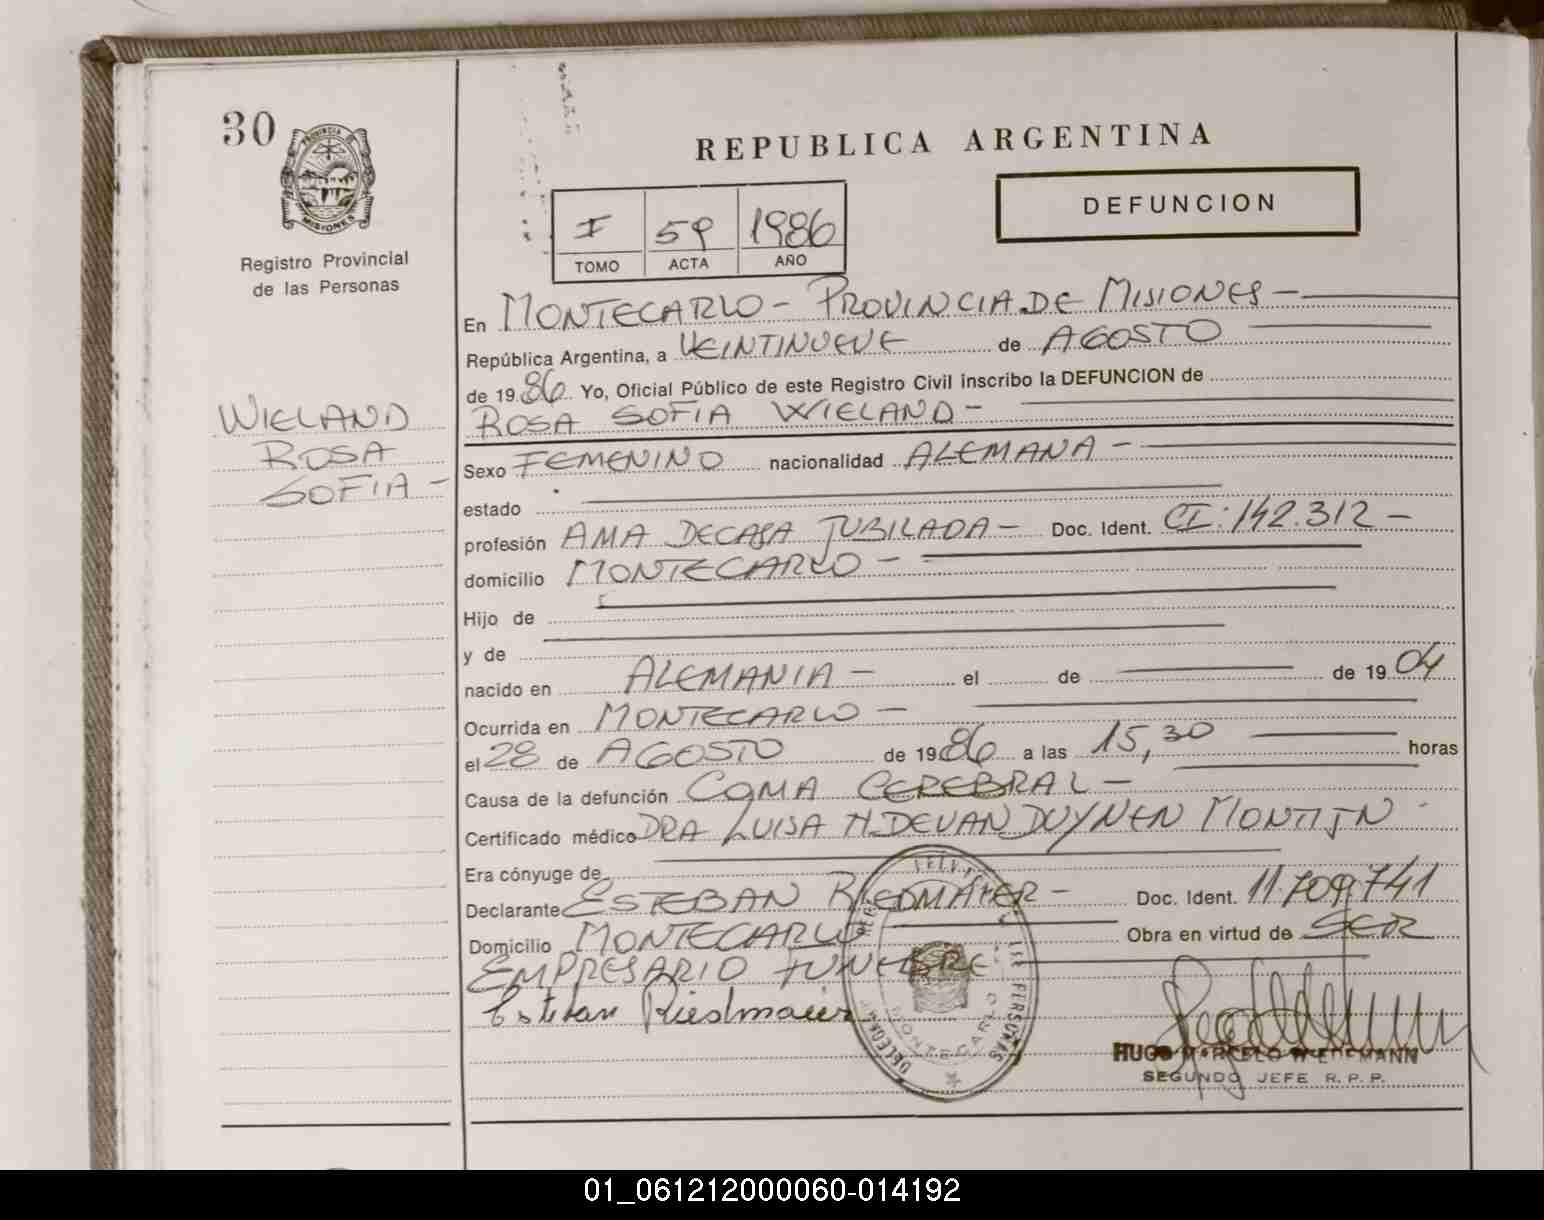 30
PROVINCIA DE
MISIONES
Registro Provincial
de las Personas
REPUBLICA ARGENTINA
DEFUNCION
I 59 1986
TOMO ACTA AÑO
En MONTECARLO - PROVINCIA DE MISIONES -
República Argentina, a VEINTINUEVE de AGOSTO
de 1986 Yo, Oficial Público de este Registro Civil inscribo la DEFUNCION de
ROSA SOFIA WIELAND -
WIELAND
ROSA
SOFIA -
Sexo FEMENINO nacionalidad ALEMANA -
estado
profesión AMA DE CASA JUBILADA - Doc. Ident. CI: 142.312 -
domicilio MONTECARLO -
Hijo de
y de
nacido en ALEMANIA - el de de 1904
Ocurrida en MONTECARLO -
el 28 de AGOSTO de 1986 a las 15,30 horas
Causa de la defunción COMA CEREBRAL -
Certificado médico DRA LUISA H. DE VAN DUYNEN MONTIJN
Era cónyuge de
Declarante ESTEBAN RIEDMAIER - Doc. Ident. 11.709.741
Domicilio MONTECARLO Obra en virtud de SER
EMPRESARIO FUNEBRE
Esteban Riedmaier
PERSONAS
MONTECARLO
HUGO MARCELO WIEDEMANN
SEGUNDO JEFE R. P. P.
01_061212000060-014192